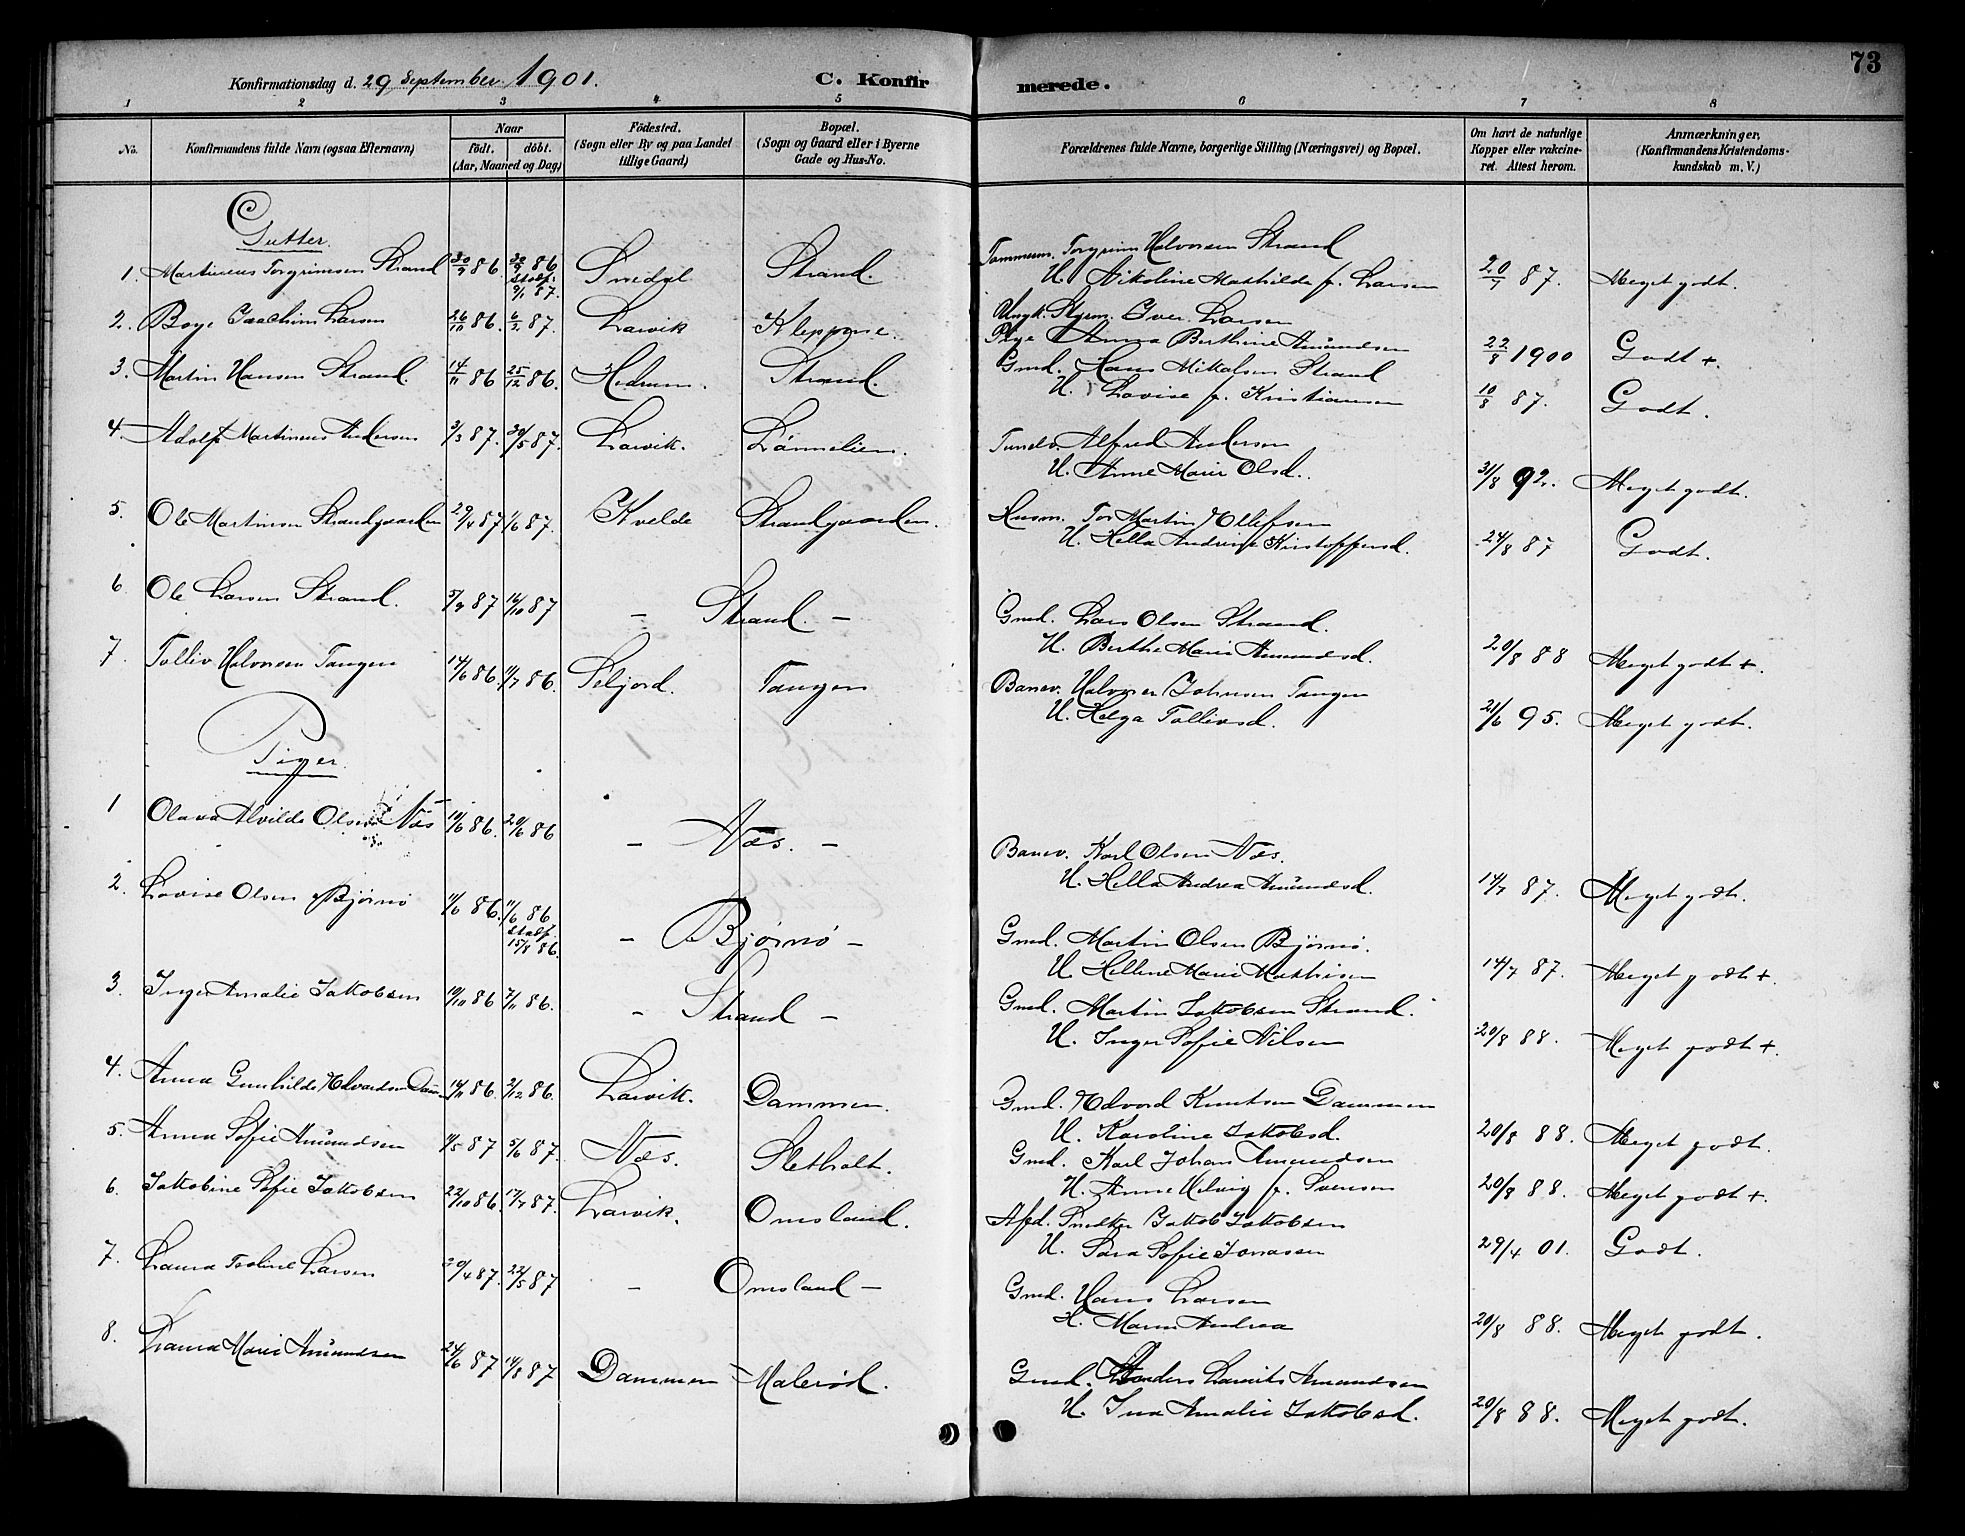 73
Konfirmationsdag d. 29 September 1901.
C. Konfir merede.
1 2 3 4 5 6 7 8
No.
Konfirmandens fulde Navn (ogsaa Efternavn)
Naar
födt. döbt.
(Aar, Maaned og Dag)
Födested.
(Sogn eller By og paa Landet
tillige Gaard)
Bopæl.
(Sogn og Gaard eller i Byerne
Gade og Hus-No.
Forældrenes fulde Navne, borgerlige Stilling (Næringsvei) og Bopæl.
Om havt de naturlige
Kopper eller vakcine-
ret. Attest herom.
Anmærkninger,
(Konfirmandens Kristendoms-
kundskab m. V.)
Gutter.
1. Martinius Torgrimsen Strand 30/9 86 30/9 86 Strand.
stadf. 9/1 87.
Tommerm. Torgrim Halvorsen Strand
H. Nikoline Mathilde f. Larsen 20/7 87. Meget godt.
2. Boye Joachim Larsen 26/10 86. 6/2 87. Larvik
Ungk. Styrm. Iver Larsen
Pige Anna Berthine Amundsen 22/8 1900 Godt +.
3. Martin Hansen Strand. 14/11 86 25/12 86. Hedrum. Strand.
Gmd. Hans Mikalsen Strand
H. Lovise f. Kristiansen 10/8 87. Godt.
4. Adolf Martinius Andersen 3/3 87. 20/5 87. Larvik. Lønnelien.
Alfred Andersen
H. Anne Marie Olsd. 31/8 92. Meget godt.
5. Ole Martinsen Strandgaarden 29/4 87 1/6 87. Kvelde Strandgaarden.
Husm. Tor Martin Ellefsen
H. Hella Andrine Kristoffersd. 24/8 87 Godt.
6 Ole Larsen Strand. 5/9 87 16/10 87 - Strand. -
Gmd. Lars Olsen Strand.
H. Berthe Marie Amundsd. 20/8 88 Meget godt +.
7. Tolliv Halvorsen Tangen 14/6 86. 11/7 86. Seljord. Tangen
Banev. Halvor Johnsen Tangen
H. Helga Tollivsd. 21/6 95. Meget godt.
Piger.
1 Olava Alvilde Olsen Næs 10/6 86. 20/6 86 - Næs. -
Banev. Karl Olsen Næs.
H. Hella Andrea Amundsd. 14/7 87. Meget godt.
2. Lovise Olsen Bjørnø 11/6 86. 11/6 86 - Bjørnø -
stadf. 15/8 86.
Gmd. Martin Olsen Bjørnø.
H. Helline Marie Mathisen 14/7 87. Meget godt +.
3. Inger Amalie Jakobsen 10/10 86 7/11 86. - Strand -
Gmd. Martin Jakobsen Strand.
H. Inger Sofie Nilsen 20/8 88. Meget godt +.
4. Anna Gunhilde Edvardsen 14/11 86. 2/12 86. Larvik. Dammen.
Gmd. Edvard Knutsen Dammen
H. Karoline Jakobsd. 20/8 88. Meget godt.
5. Anna Sofie Amundsen 11/5 87 5/6 87. Næs. Sletholt.
Gmd. Karl Johan Amundsen
H. Anne Helvig f. Svensen 20/8 88. Meget godt +.
6. Jakobine Sofie Jakobsen 22/10 86. 17/7 87. Larvik. Omsland.
Afd. Snedker Jakob Jakobsen
H. Sara Sofie Jonassen 29/4 01. Godt.
7. Laura Larsen 20/4 87. 22/5 87 - Omsland -
Gmd. Hans Larsen
H. Maren Andrea 20/8 88. Meget godt.
8. Laura Marie Amundsen 24/6 87 14/8 87 Dammen Malerød.
Gmd. Anders Lavrits Amundsen
H. Ina Amalie Jakobsd. 20/8 88. Meget godt.